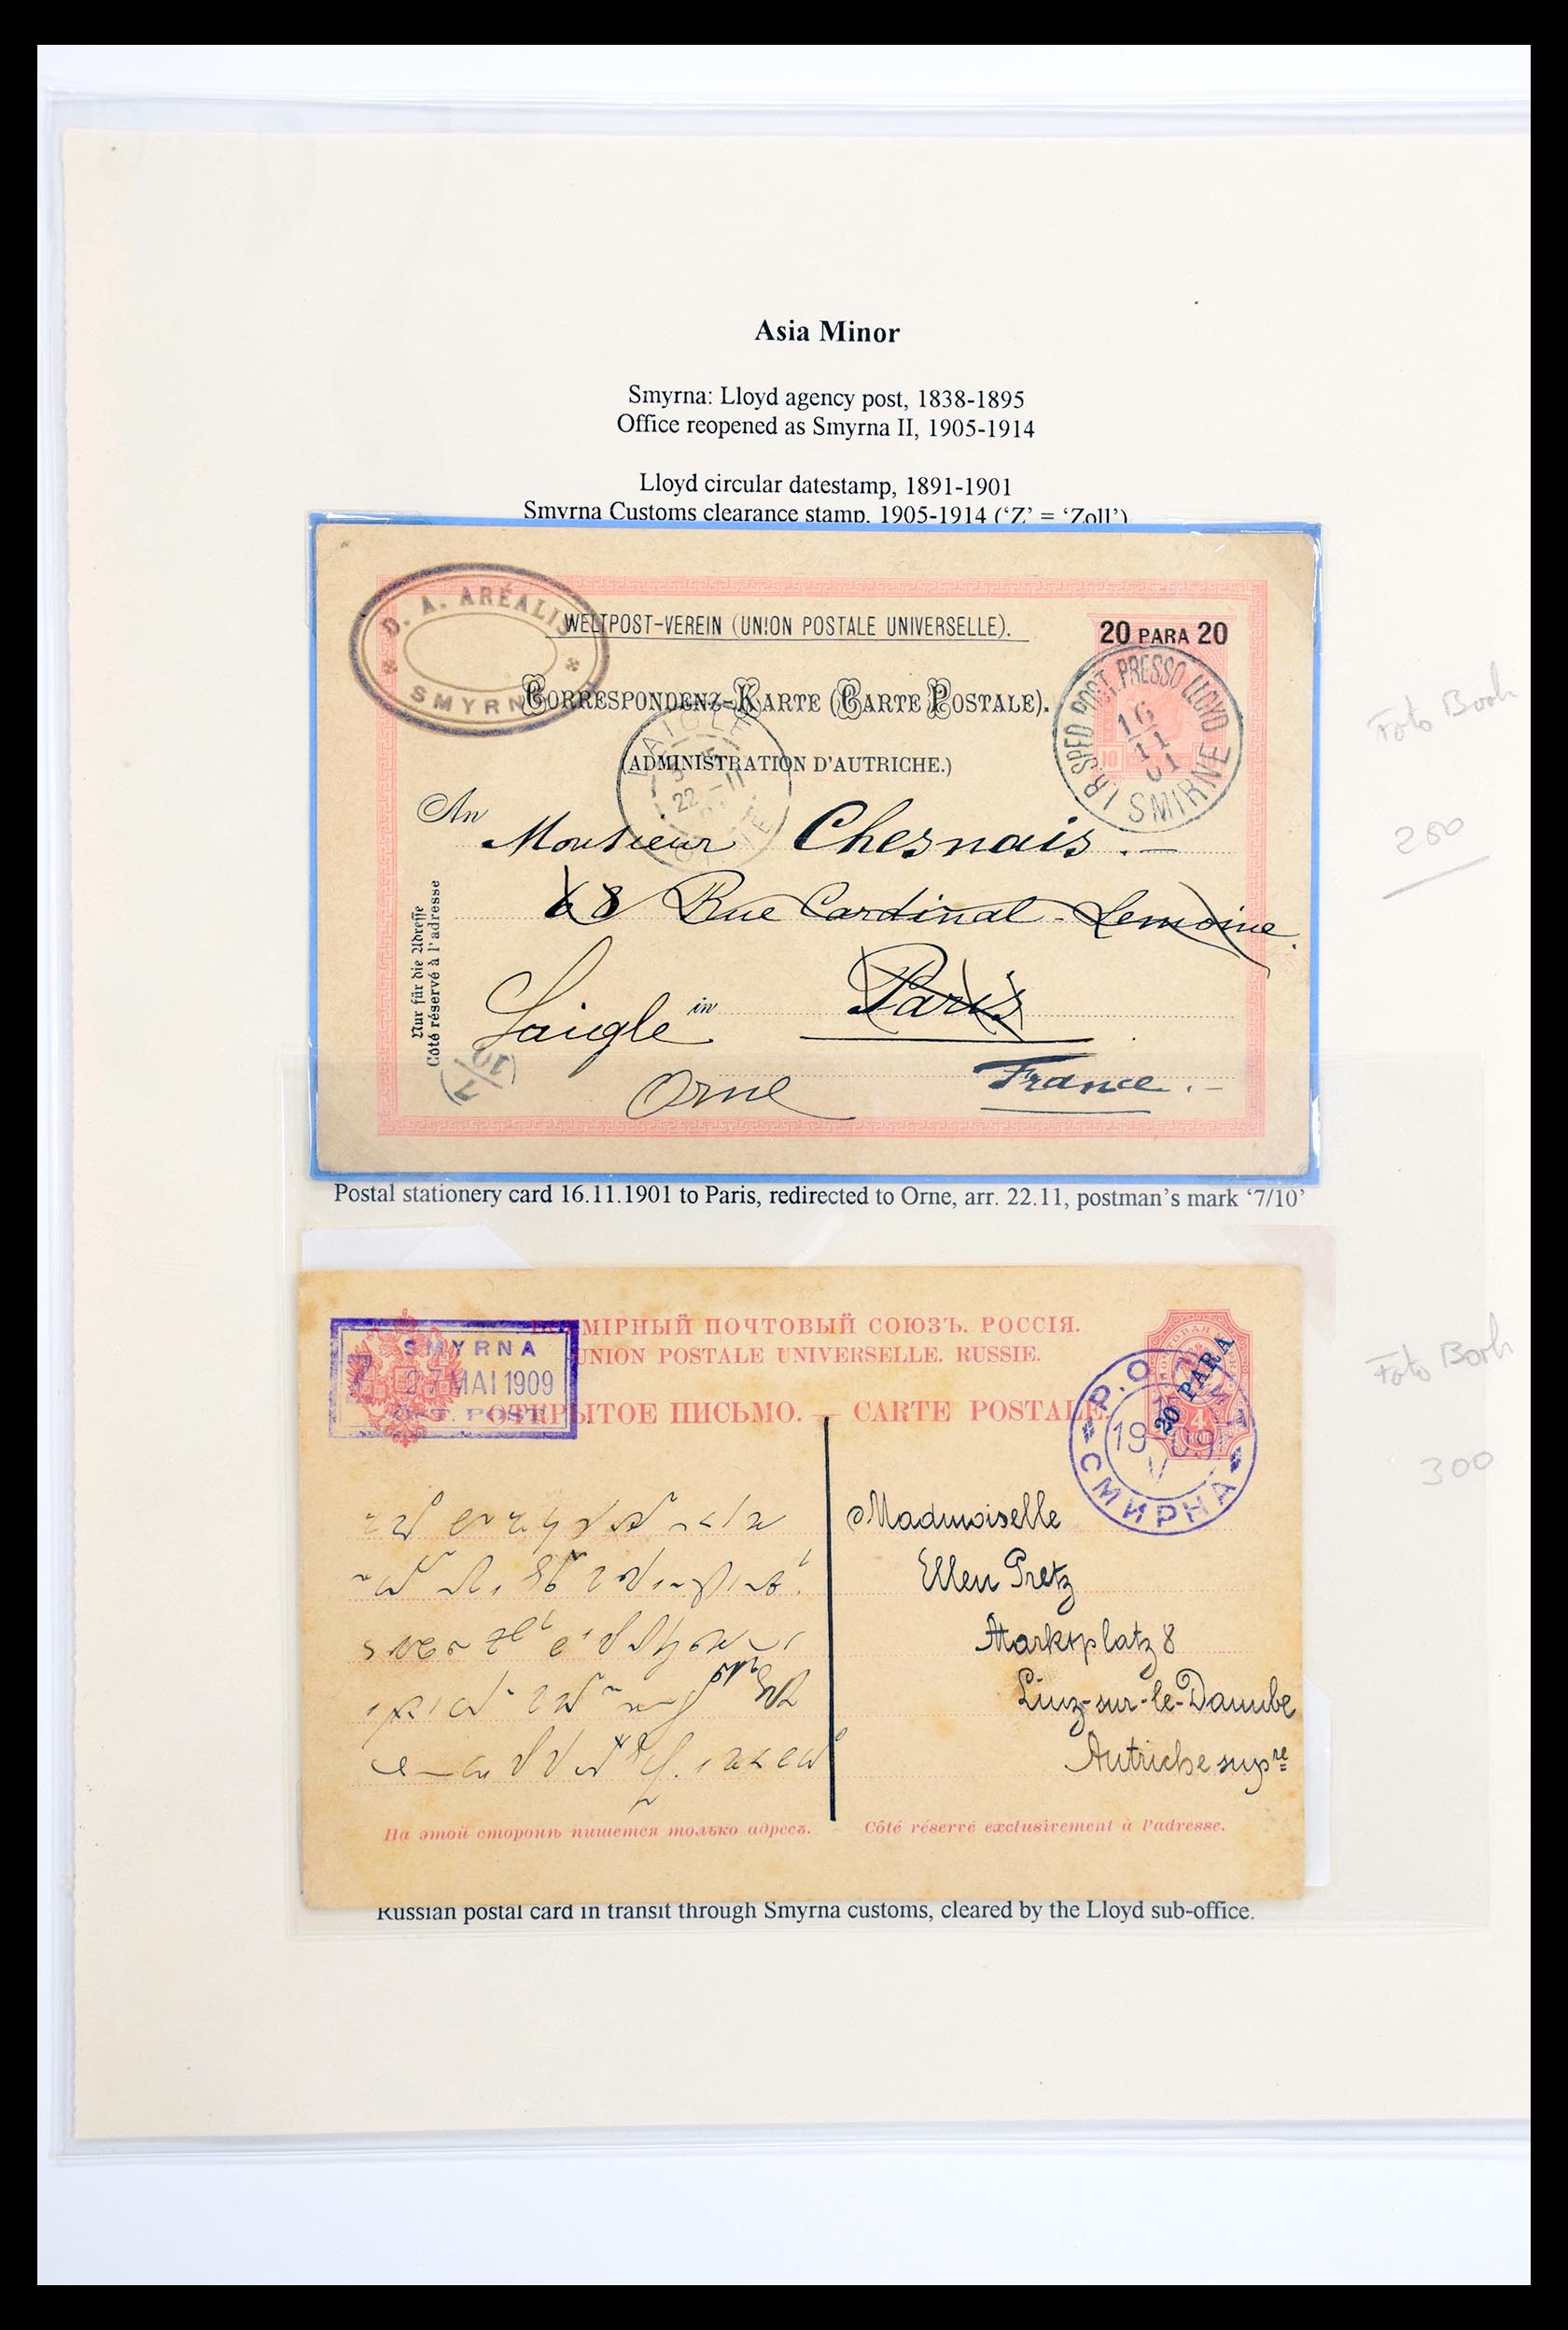 Asia Minor
Smyrna: Lloyd agency post, 1838-1895
Office reopened as Smyrna II, 1905-1914
Lloyd circular datestamp, 1891-1901
Smyrna Customs clearance stamp, 1905-1914 (‘Z’ = ‘Zoll’)
D. A. ARÉALIS
SMYRNE
WELTPOST-VEREIN (UNION POSTALE UNIVERSELLE).
20 PARA 20
CORRESPONDENZ-KARTE (CARTE POSTALE).
(ADMINISTRATION D'AUTRICHE.)
I.R. SPED. POST. PRESSO LLOYD
16
11
01
SMIRNE
10
LAIGLE
22 -11
ORNE
An
Monsieur Chesnais.—
68 Rue Cardinal-Lemoine.
Laigle in Paris
Orne France.-
Nur für die Adresse
Côté réservé à l'adresse
7/10
Foto Borh
250
Postal stationery card 16.11.1901 to Paris, redirected to Orne, arr. 22.11, postman’s mark ‘7/10’
МІРНЫЙ ПОЧТОВЫЙ СОЮЗЪ. РОССІЯ.
UNION POSTALE UNIVERSELLE. RUSSIE.
ОТКРЫТОЕ ПИСЬМО. — CARTE POSTALE.
Z
SMYRNA
27 MAI 1909
ÖST. POST
20 PARA
4
Р.О
19 09
V
СМИРНА
Madmoiselle
Ellen Pretz
Marktplatz 8
Linz-sur-le-Danube
Autriche supre
На этой сторонѣ пишется только адресъ.
Côté réservé exclusivement à l'adresse.
Foto Borh
300
Russian postal card in transit through Smyrna customs, cleared by the Lloyd sub-office.